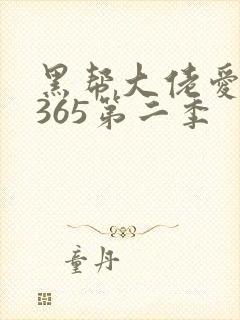 黑帮大佬爱
365第二季
童丹